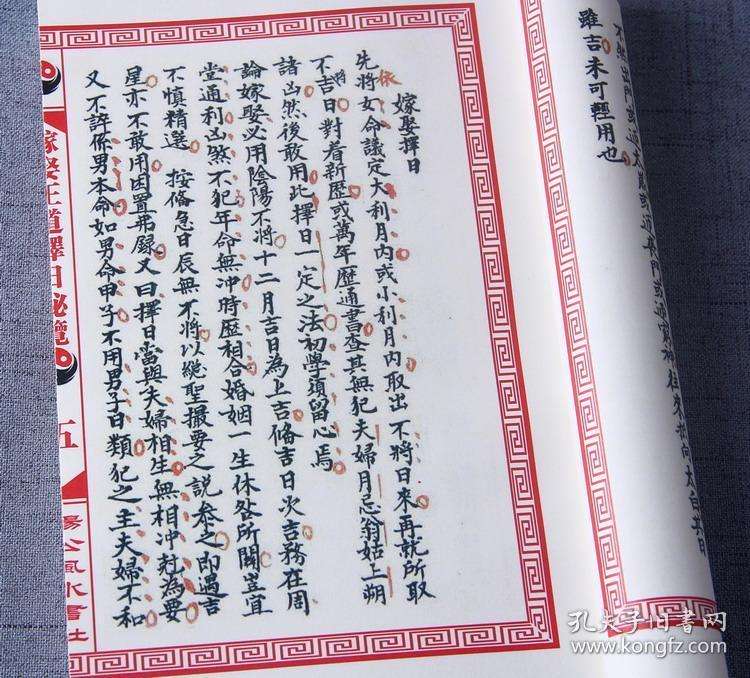 雖吉未可輕用也
嫁娶擇日
先將女命議定大利月內或小利月內取出不將日來再就所取
依
不吉日對着新歷或萬年歷通書查其無犯夫婦月忌翁姑上朔
將
諸凶然後敢用此擇日一定之法初學須留心焉
論嫁娶必用陰陽不將十二月吉日為上吉俻吉日次吉務在周
堂通利凶煞不犯年命無冲時歷相合婚姻一生休咎所關豈宜
不慎精選 按俻急日辰無不將以總聖撮要之說參之即遇吉
星亦不敢用因置弗録又曰擇日當與夫婦相生無相冲尅為要
又不許係男本命如男命甲子不用男子日類犯之主夫婦不和
嫁娶王道擇日秘覽
五
楊公風水書社
孔夫子旧書网
www.kongfz.com